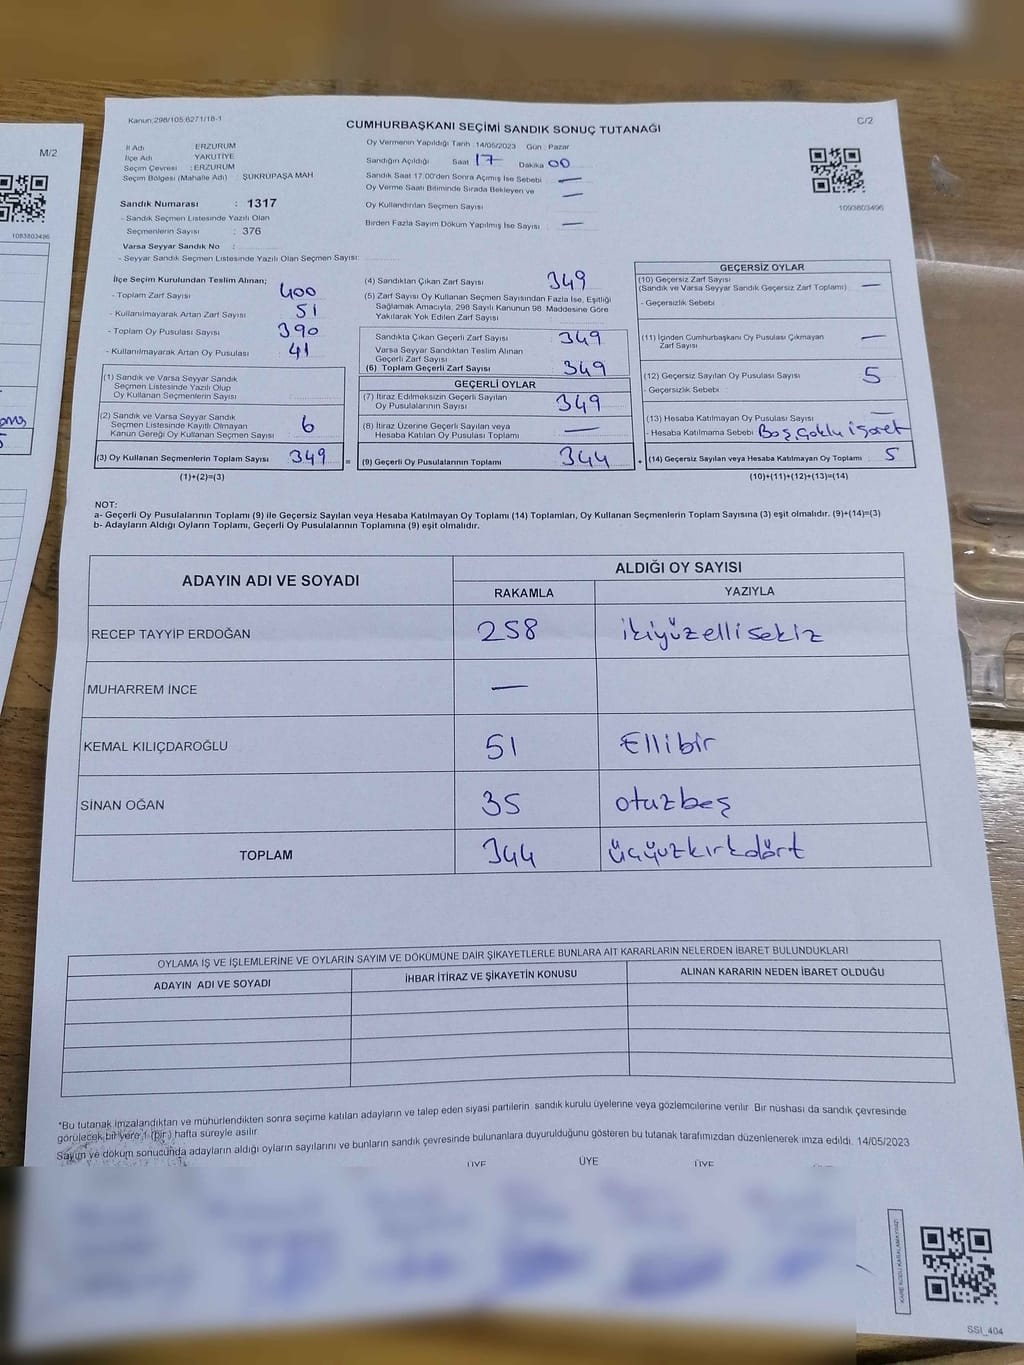 M/2
1083803496
Kanun:298/105,6271/18-1
C/2
CUMHURBAŞKANI SEÇİMİ SANDIK SONUÇ TUTANAĞI
İl Adı ERZURUM
İlçe Adı YAKUTİYE
Seçim Çevresi : ERZURUM
Seçim Bölgesi (Mahalle Adı) : ŞÜKRÜPAŞA MAH
Sandık Numarası : 1317
- Sandık Seçmen Listesinde Yazılı Olan
Seçmenlerin Sayısı : 376
Varsa Seyyar Sandık No :
- Seyyar Sandık Seçmen Listesinde Yazılı Olan Seçmen Sayısı:
Oy Vermenin Yapıldığı Tarih 14/05/2023 Gün : Pazar
Sandığın Açıldığı Saat 17 Dakika 00
Sandık Saat 17:00'den Sonra Açımış İse Sebebi : —
Oy Verme Saati Bitiminde Sırada Bekleyen ve
Oy Kullandırılan Seçmen Sayısı : —
Birden Fazla Sayım Döküm Yapılmış İse Sayısı : —
1093803496
İlçe Seçim Kurulundan Teslim Alınan;
- Toplam Zarf Sayısı 400
- Kullanılmayarak Artan Zarf Sayısı 51
- Toplam Oy Pusulası Sayısı 390
- Kullanılmayarak Artan Oy Pusulası 41
(1) Sandık ve Varsa Seyyar Sandık
Seçmen Listesinde Yazılı Olup
Oy Kullanan Seçmenlerin Sayısı
(2) Sandık ve Varsa Seyyar Sandık
Seçmen Listesinde Kayıtlı Olmayan
Kanun Gereği Oy Kullanan Seçmen Sayısı 6
(3) Oy Kullanan Seçmenlerin Toplam Sayısı 349 =
(1)+(2)=(3)
(4) Sandıktan Çıkan Zarf Sayısı 349
(5) Zarf Sayısı Oy Kullanan Seçmen Sayısından Fazla İse, Eşitliği
Sağlamak Amacıyla, 298 Sayılı Kanunun 98. Maddesine Göre
Yakılarak Yok Edilen Zarf Sayısı
Sandıkta Çıkan Geçerli Zarf Sayısı 349
Varsa Seyyar Sandıktan Teslim Alınan
Geçerli Zarf Sayısı
(6) Toplam Geçerli Zarf Sayısı 349
GEÇERLİ OYLAR
(7) İtiraz Edilmeksizin Geçerli Sayılan
Oy Pusulalarının Sayısı 349
(8) İtiraz Üzerine Geçerli Sayılan veya
Hesaba Katılan Oy Pusulası Toplamı —
(9) Geçerli Oy Pusulalarının Toplamı 344 +
GEÇERSİZ OYLAR
(10) Geçersiz Zarf Sayısı
(Sandık ve Varsa Seyyar Sandık Geçersiz Zarf Toplamı) —
- Geçersizlik Sebebi
(11) İçinden Cumhurbaşkanı Oy Pusulası Çıkmayan
Zarf Sayısı —
(12) Geçersiz Sayılan Oy Pusulası Sayısı 5
- Geçersizlik Sebebi
(13) Hesaba Katılmayan Oy Pusulası Sayısı —
- Hesaba Katılmama Sebebi Boş, Çoklu işaret
(14) Geçersiz Sayılan veya Hesaba Katılmayan Oy Toplamı 5
(10)+(11)+(12)+(13)=(14)
NOT:
a- Geçerli Oy Pusulalarının Toplamı (9) ile Geçersiz Sayılan veya Hesaba Katılmayan Oy Toplamı (14) Toplamları, Oy Kullanan Seçmenlerin Toplam Sayısına (3) eşit olmalıdır. (9)+(14)=(3)
b- Adayların Aldığı Oyların Toplamı, Geçerli Oy Pusulalarının Toplamına (9) eşit olmalıdır.
ADAYIN ADI VE SOYADI ALDIĞI OY SAYISI
RAKAMLA YAZIYLA
RECEP TAYYİP ERDOĞAN 258 ikiyüzellisekiz
MUHARREM İNCE —
KEMAL KILIÇDAROĞLU 51 Ellibir
SİNAN OĞAN 35 otuzbeş
TOPLAM 344 üçyüzkırkdört
OYLAMA İŞ VE İŞLEMLERİNE VE OYLARIN SAYIM VE DÖKÜMÜNE DAİR ŞİKAYETLERLE BUNLARA AİT KARARLARIN NELERDEN İBARET BULUNDUKLARI
ADAYIN ADI VE SOYADI İHBAR İTİRAZ VE ŞİKAYETİN KONUSU ALINAN KARARIN NEDEN İBARET OLDUĞU
*Bu tutanak imzalandıktan ve mühürlendikten sonra seçime katılan adayların ve talep eden siyasi partilerin sandık kurulu üyelerine veya gözlemcilerine verilir. Bir nüshası da sandık çevresinde
görülecek bir yere 1 (bir) hafta süreyle asılır.
Sayım ve döküm sonucunda adayların aldığı oyların sayılarını ve bunların sandık çevresinde bulunanlara duyurulduğunu gösteren bu tutanak tarafımızdan düzenlenerek imza edildi. 14/05/2023
ÜYE ÜYE ÜYE
KARE KODU KARALAMAYINIZ!
SSI_404